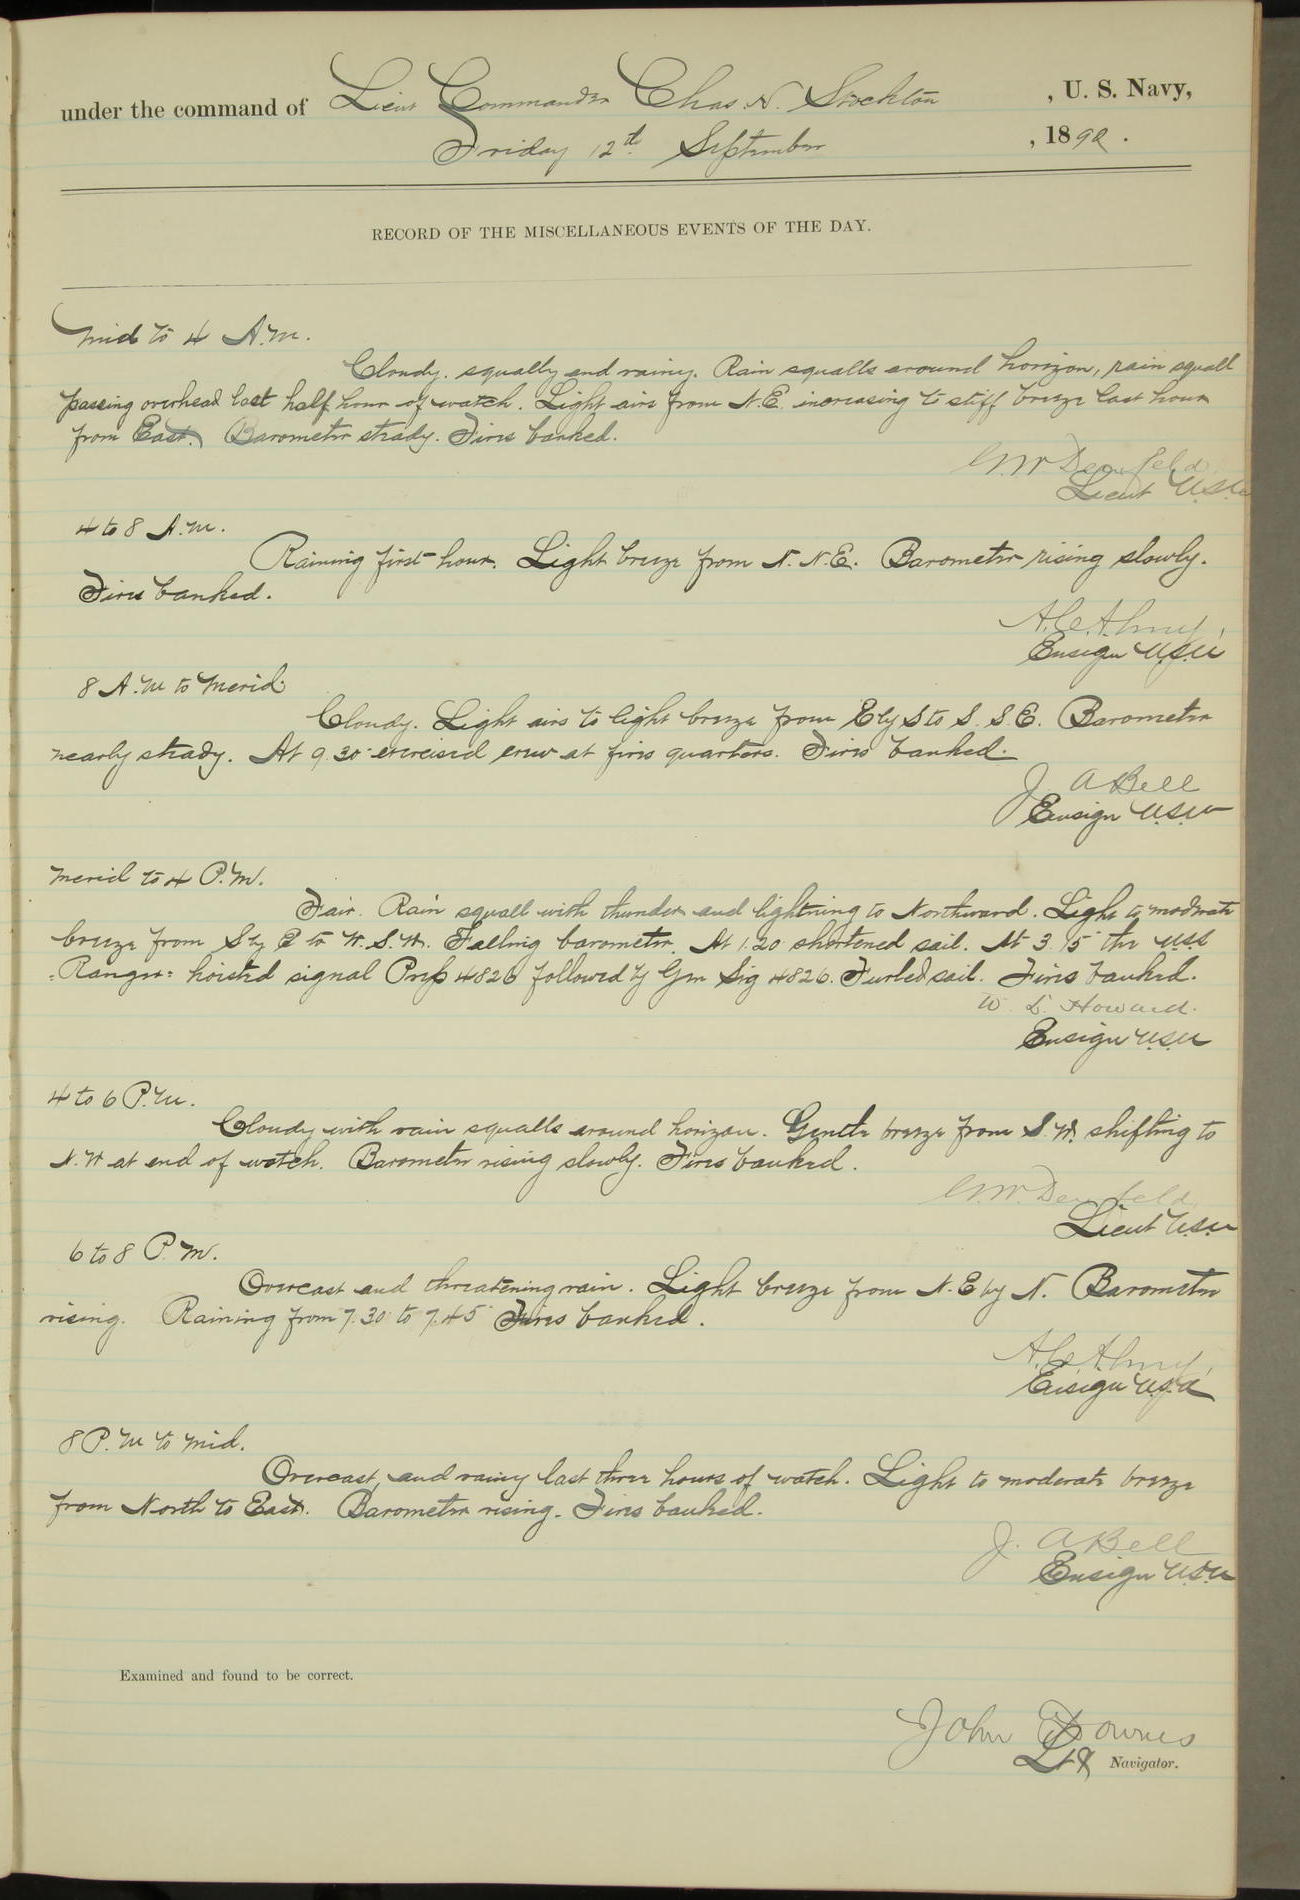 under the command of Lieut Commander Chas. H. Stockton, U. S. Navy,
Friday 12th September, 1890.
RECORD OF THE MISCELLANEOUS EVENTS OF THE DAY.
Mid to 4 A.M.
Cloudy. squally and rainy. Rain squalls around horizon, rain squall
passing overhead last half hour of watch. Light airs from N.E. increasing to stiff breeze last hour
from East. Barometer steady. Fires banked.
G.W. Denfeld
Lieut U.S.N.
4 to 8 A.M.
Raining first hour. Light breeze from N.N.E. Barometer rising slowly.
Fires banked.
A.C. Almy,
Ensign U.S.N.
8 A.M to Merid
Cloudy. Light airs to light breeze from E by S to S.S.E. Barometer
nearly steady. At 9.30 exercised crew at fire quarters. Fires banked.
J. A Bell
Ensign U.S.N
Merid to 4 P.M.
Fair. Rain squall with thunder and lightning to Northward. Light to moderate
breeze from S by E to W.S.W. Falling barometer. At 1.20 shortened sail. At 3.15 the USS
"Ranger" hoisted signal Prep 4826 followed by Gen Sig 4826. Furled sail. Fires banked.
W. L. Howard.
Ensign U.S.N
4 to 6 P.M.
Cloudy with rain squalls around horizon. Gentle breeze from S.W. shifting to
N.W at end of watch. Barometer rising slowly. Fires banked.
G.W. Denfeld
Lieut U.S.N
6 to 8 P.M.
Overcast and threatening rain. Light breeze from N.E by N. Barometer
rising. Raining from 7.30 to 7.45 Fires banked.
A.C. Almy,
Ensign U.S.N
8 P.M to Mid.
Overcast, and rainy last three hours of watch. Light to moderate breeze
from North to East. Barometer rising. Fires banked.
J. A Bell
Ensign U.S.N
Examined and found to be correct.
John Downes
Lt & Navigator.